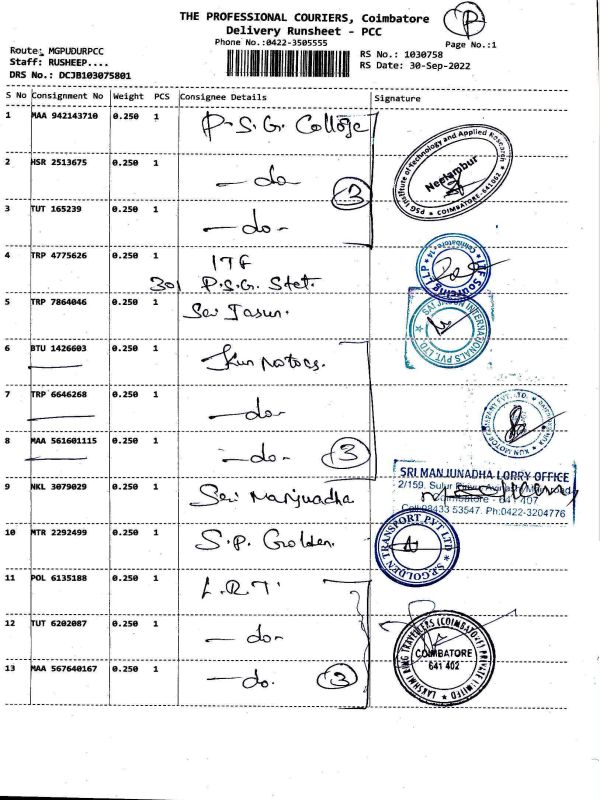 THE PROFESSIONAL COURIERS, Coimbatore
P
Delivery Runsheet - PCC
Phone No.:0422-3505555
Page No.:1
Route: MGPUDURPCC
RS No.: 1030758
Staff: RUSHEEP....
RS Date: 30-Sep-2022
DRS No.: DCJB103075801
S No Consignment No Weight PCS Consignee Details Signature
1 MAA 942143710 0.250 1 P.S.G. College
PSG Institute of Technology and Applied Research
Neelambur
COIMBATORE. 641062
2 HSR 2513675 0.250 1 -do-
3
3 TUT 165239 0.250 1 -do-
4 TRP 4775626 0.250 1 ITF
301 P.S.G. Stet.
ITF Sourcing LLP
5 TRP 7864046 0.250 1 Sai Jasun.
SAI JASUN INTERNATIONALS PVT LTD
6 BTU 1426603 0.250 1 Kun Motors.
7 TRP 6646268 0.250 1 -do-
KUN MOTOR COMPANY PVT. LTD.
8 MAA 561601115 0.250 1 -do- 3
SRI MANJUNADHA LORRY OFFICE
2/159, Sulur
Coimbatore - 641 407
Cell:98433 53547. Ph:0422-3204776
9 NKL 3079029 0.250 1 Sri Manjunadha
10 MTR 2292499 0.250 1 S.P. Golden.
S.P.GOLDEN TRANSPORT PVT LTD
11 POL 6135188 0.250 1 L.R.T.
12 TUT 6202087 0.250 1 -do-
LAKSHMI RING TRAVELLERS (COIMBATORE) PRIVATE LIMITED
COIMBATORE
641 402
13 MAA 567640167 0.250 1 -do. 3